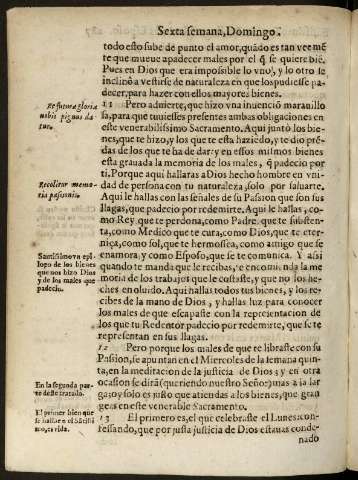 Sexta semana, Domingo.
todo esto sube de punto el amor, quãdo es tan veemẽ
te que mueue a padecer males por el q̃ se quiere biẽ.
Pues en Dios que era impossible lo vno, y lo otro se
inclinò a vestirse de naturaleza en los que pudiesse pa-
decer, para hazer con ellos mayores bienes.
Et futuræ gloriæ
nobis pignus da
tur.
11 Pero aduierte, que hizo vna inuenció marauillo
sa, para que tuuiesses presentes ambas obligaciones en
este venerabilissimo Sacramento. Aqui juntò los bie-
nes, que te hizo, y los que te està haziẽdo, y te dio prẽ-
das de los que te ha de dar: y en essos mismos bienes
esta grauada la memoria de los males, q̃ padecio por
ti. Porque aqui hallaras a Dios hecho hombre en vni-
Recolitur memo
ria passionis.
dad de persona con tu naturaleza, solo por saluarte.
Aqui le hallas con las señales de su Passion que son sus
llagas, que padecio por redemirte. Aqui le hallas, co-
mo Rey que te perdona, como Padre que te susten-
ta, como Medico que te cura, como Dios, que te eter-
niça, como sol, que te hermosea, como amigo que se
enamora, y como Esposo, que se te comunica. Y assi
Santissimo va epi-
logo de los bienes
que nos hizo Dios
y de los males que
padecio.
quando te manda que le recibas, te encomienda la me
moria de los trabajos que le costaste, y que no los he-
ches en oluido. Aqui hallas todos tus bienes, y los re-
cibes de la mano de Dios, y hallas luz para conocer
los males de que escapaste con la representacion de
los que tu Redentor padecio por redemirte, que se te
representan en sus llagas.
12 Pero porque los males de que te libraste con su
Passion, se apuntan en el Miercoles de la semana quin-
ta, en la meditacion de la justicia de Dios; y en otra
En la segunda par-
te deste tratado.
ocasion se dirà (queriendo nuestro Señor) mas a la lar
ga; oy solo es justo que atiendas a los bienes, que gran
geas en este venerable Sacramento.
El primer bien que
se halla en el Sãtissi
mo, es vida.
13 El primero es, el que celebraste el Lunes con-
fessando, que por justa justicia de Dios estauas conde-
nado